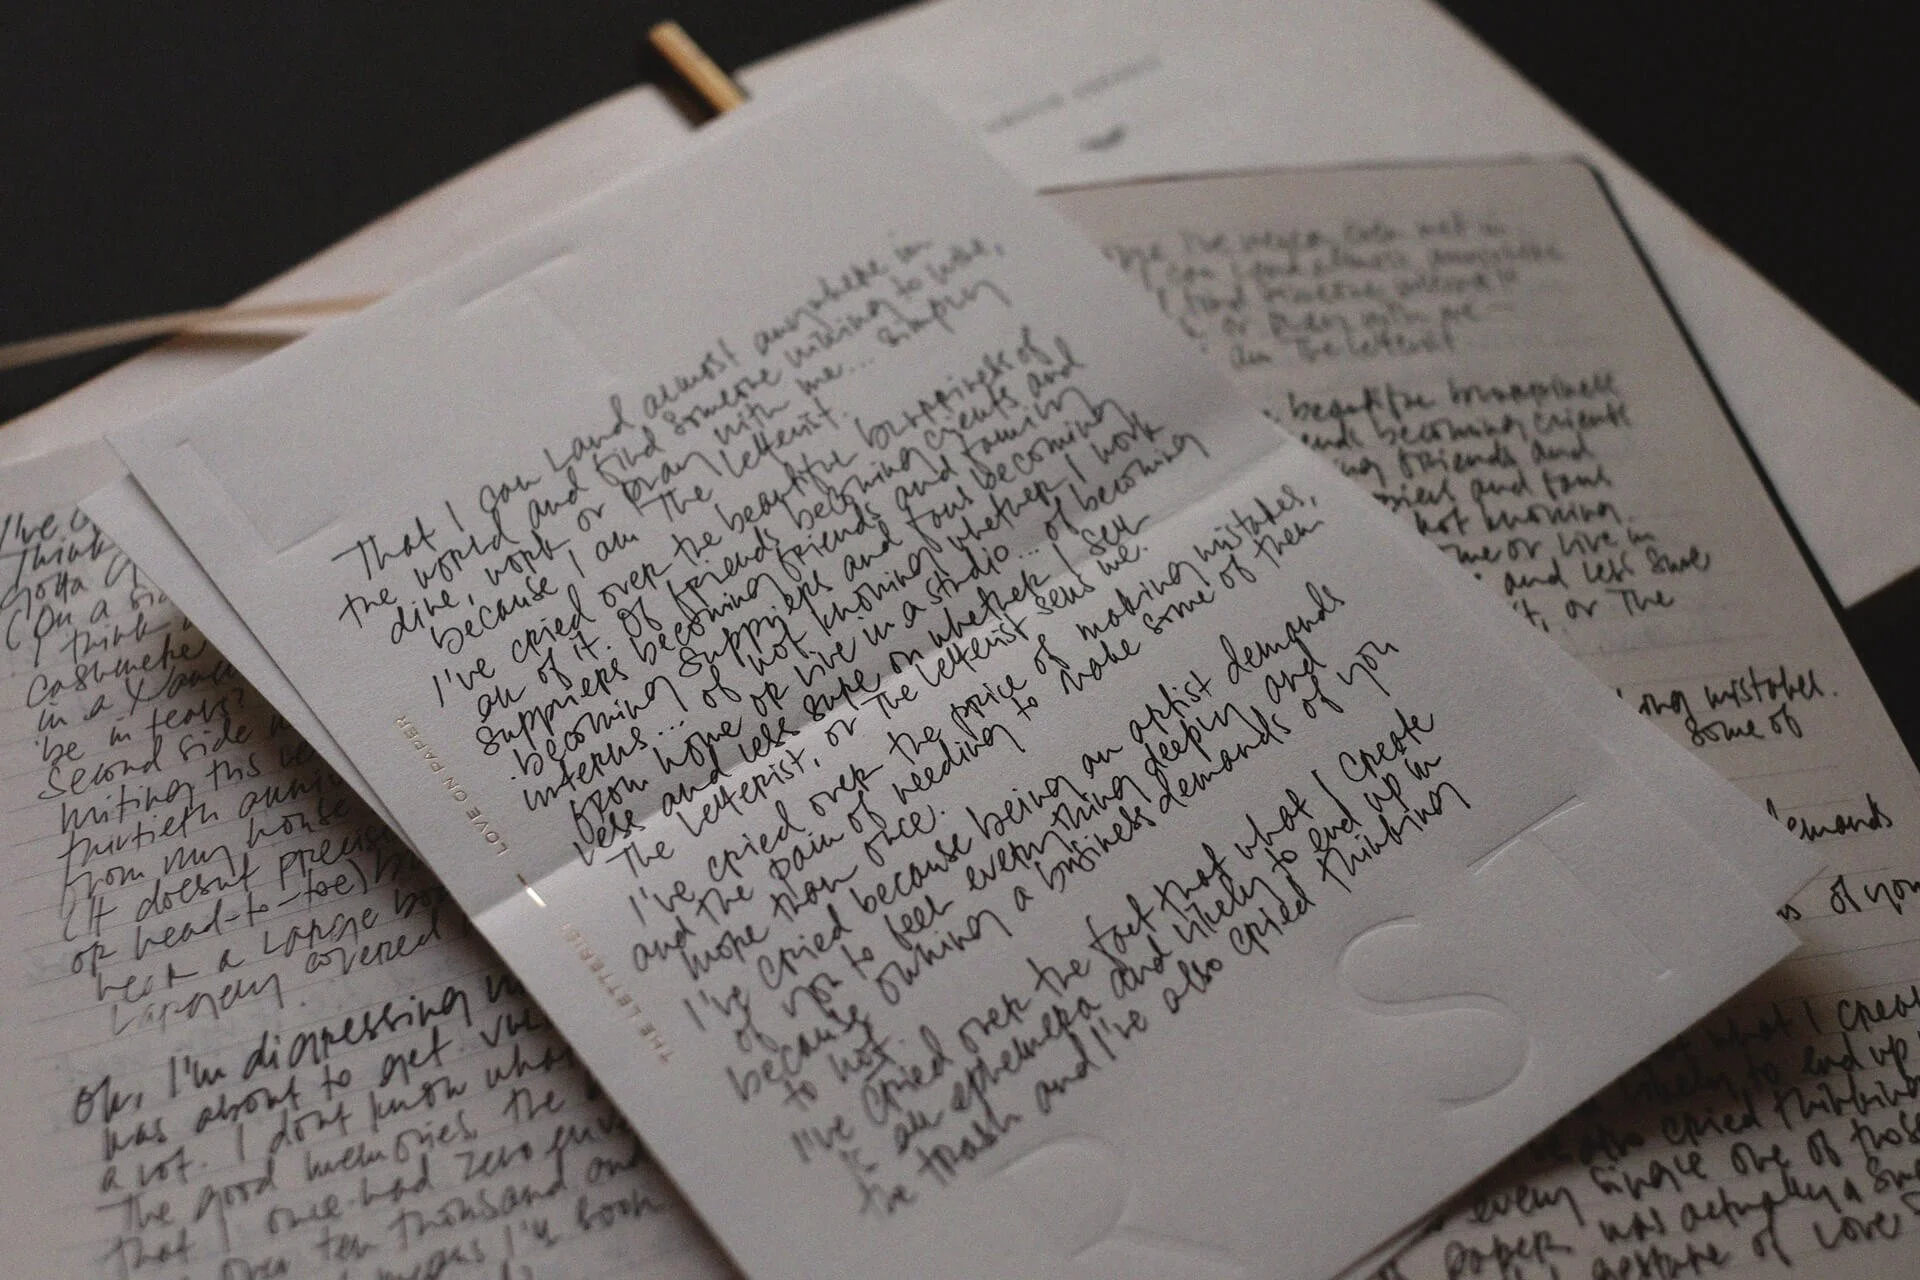 That I can land almost anywhere in
the world and find someone willing to wine,
dine, work or pray with me... simply
because I am The Letterist.
I've cried over the beautiful blurriness of
all of it. Of friends becoming clients and
suppliers becoming friends and family
becoming suppliers and fans becoming
interns... of not knowing whether I work
from home or live in a studio... of becoming
less and less sure on whether I sell
The Letterist, or The Letterist sells me.
I've cried over the price of making mistakes,
and the pain of needing to make some of them
more than once.
I've cried because being an artist demands
of you to feel everything deeply and
because owning a business demands of you
to not.
I've cried over the fact that what I create
is all ephemera and likely to end up in
the trash and I've also cried thinking
LOVE ON PAPER
THE LETTERIST
I've
think
gotta
(On a
I think
cashmere
in a
be in tears?
second side
writing this
thirtieth
from my house
(It doesn't
or head-to-toe)
near a large
largely covered
Ok, I'm digressing
was about to get
a lot. I don't know what
the good memories, the
that I once had zero
over ten thousand and
I've never even met in
can land almost anywhere
find someone willing
or pray with me
am The Letterist
beautiful blurriness
becoming clients
friends and
and fans
not knowing
or live in
and less sure
or The
mistakes.
some of
demands
of you
what I create
likely to end up
also cried thinking
every single one of those
paper was actually a
gesture of love